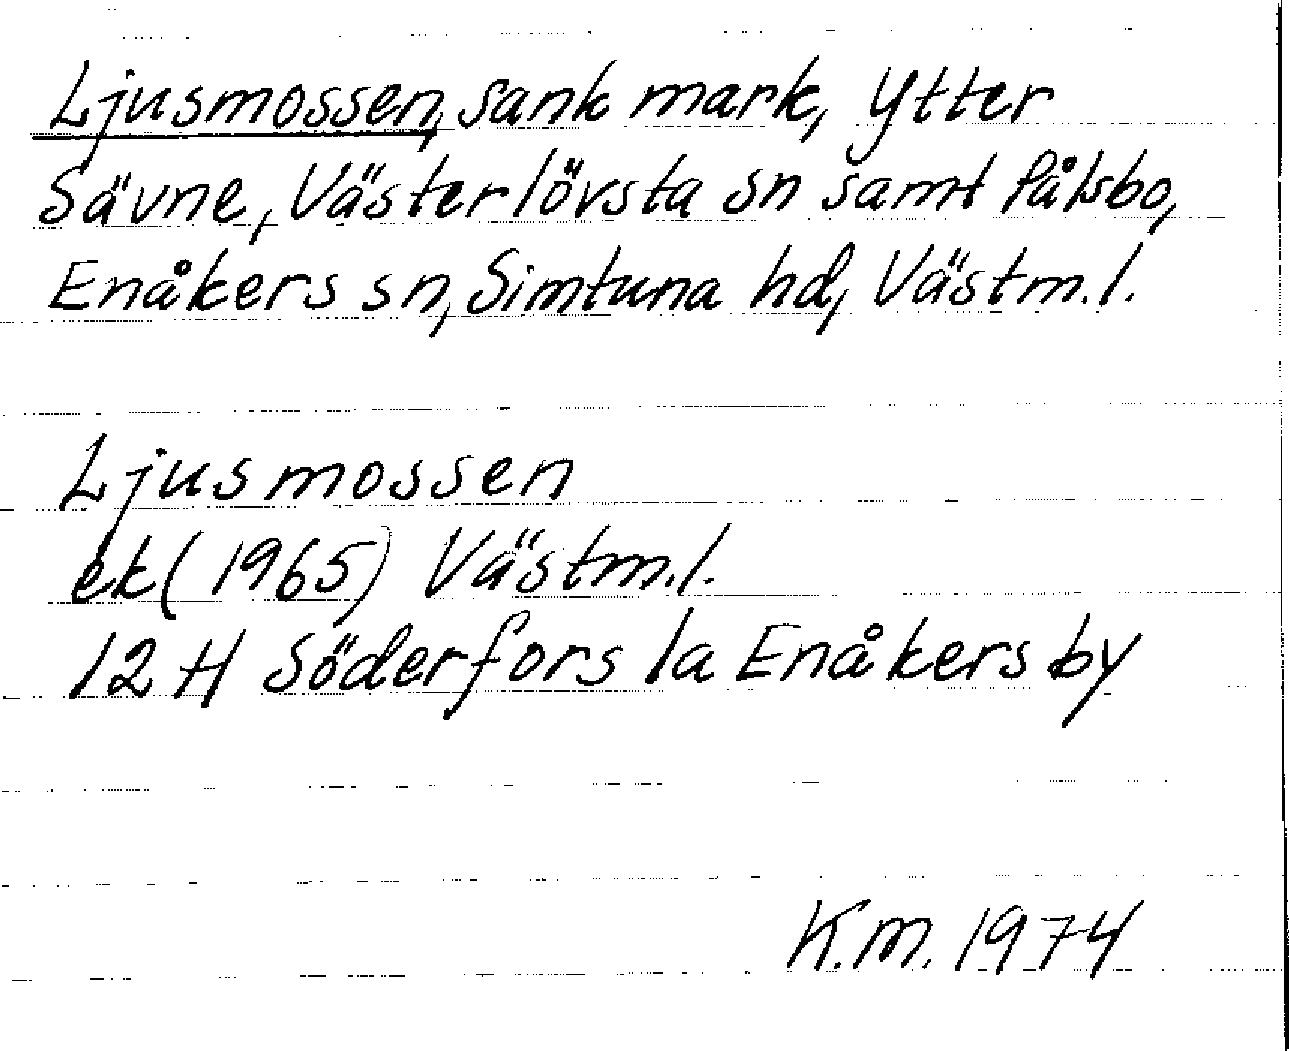 Ljusmossen, sank mark, Ytter
Sävne, Västerlövsta sn samt Pålsbo,
Enåkers sn, Simtuna hd, Västm.l.
Ljusmossen
ek (1965) Västm.l.
12 H Söderfors 1a Enåkers by
K.M. 1974